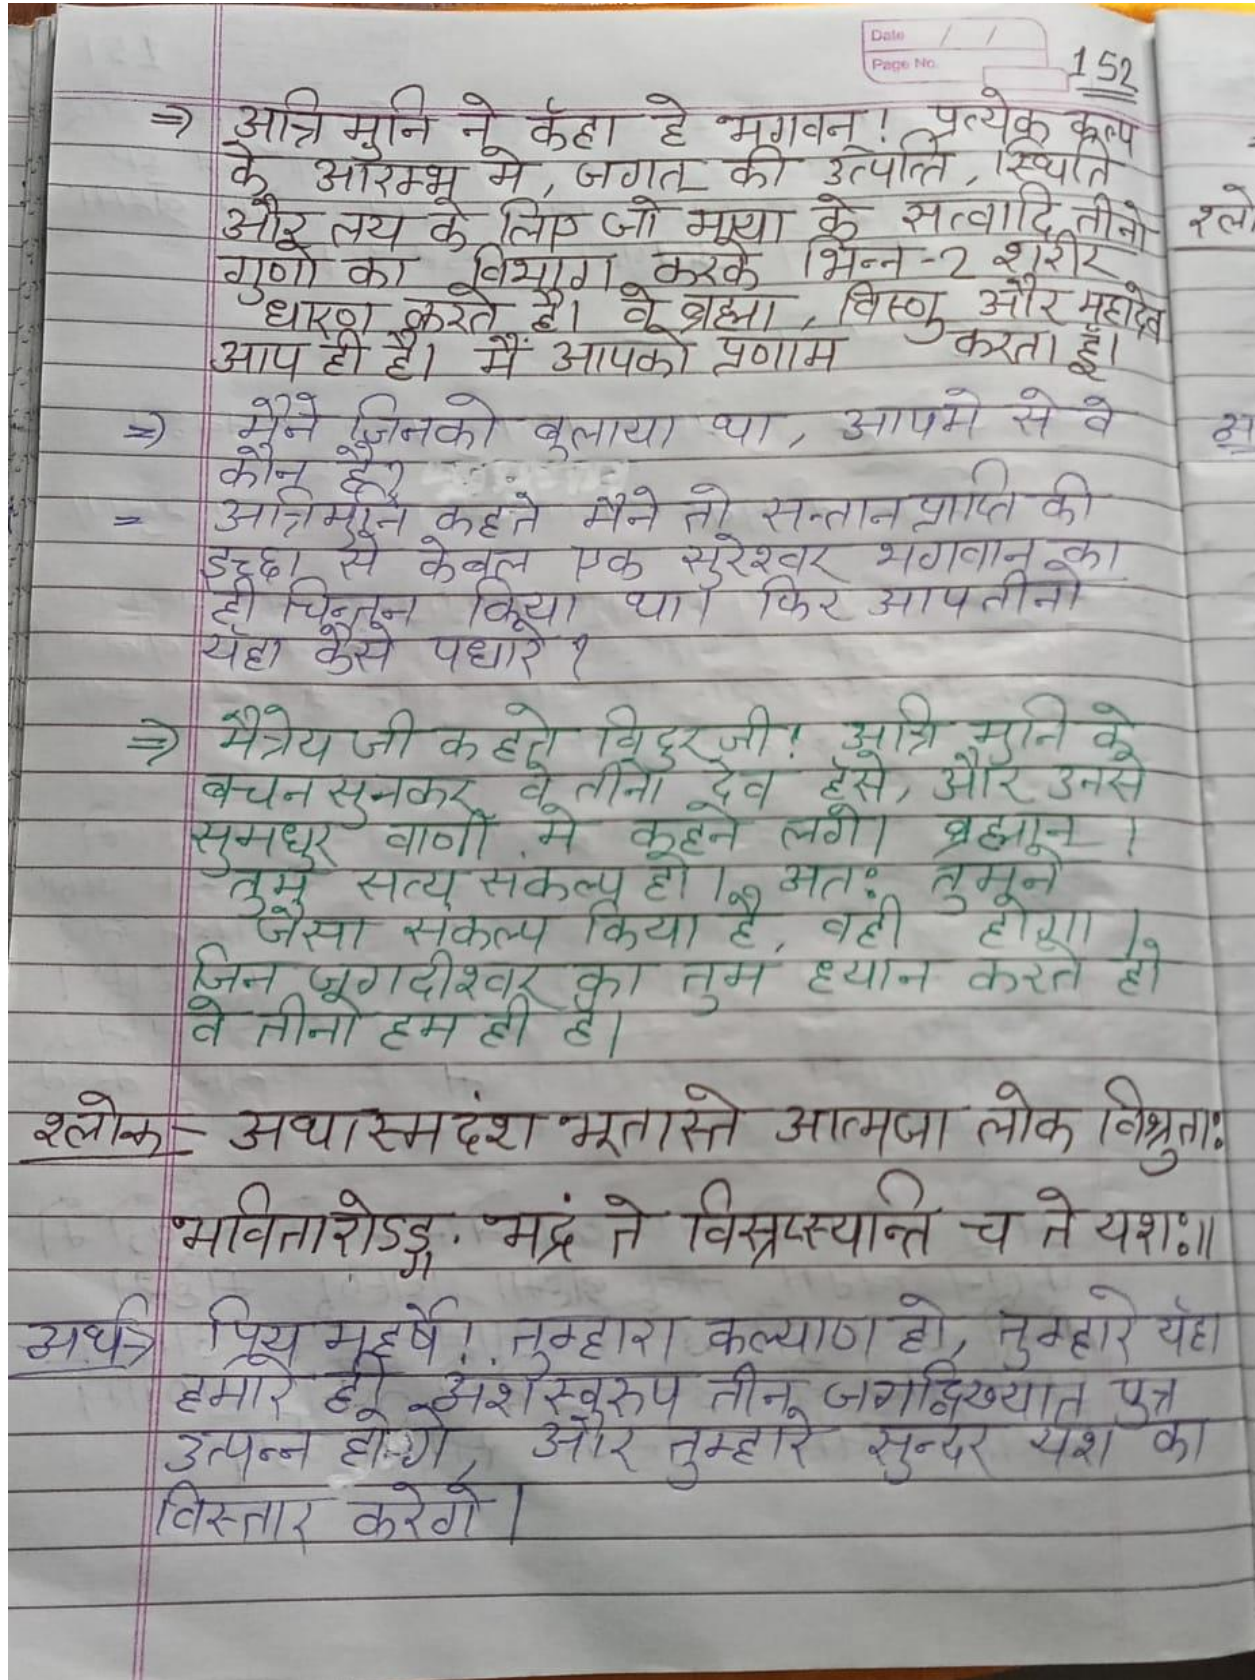 Date / /
Page No.
152
⇒ अत्रि मुनि ने कॅहा हे भगवन! प्रत्येक कल्प
के आरम्भ मे, जगत की उत्पत्ति, स्थिति
और लय के लिए जो माया के सत्वादि तीनो
गुणो का विभाग करके भिन्न-2 शरीर
धारण करते है। वे ब्रह्मा, विष्णु और महादेव
आप ही है। मैं आपको प्रणाम करता हूँ।
⇒ मैने जिनको बुलाया था, आपमे से वे
कौन है?
= अत्रिमुनि कहते मैने तो सन्तान प्राप्ति की
इच्छा से केवल एक सुरेश्वर भगवान का
ही चिन्तन किया था। फिर आप तीनो
यॅहा कैसे पधारे?
⇒ मैत्रेय जी कहते विदुर जी! अत्रि मुनि के
बचन सुनकर वे तीनो देव हॅसे, और उनसे
सुमधुर वाणी मे कहने लगे। ब्रह्मान।
तुम सत्य संकल्प हो। अतः तुमने
जैसा संकल्प किया है, वही होगा।
जिन जगदीश्वर का तुम ध्यान करते हो
वे तीनो हम ही है।
श्लोक - अथास्मदंश भूतास्ते आत्मजा लोक विश्रुताः
भवितारोऽङ्ग. भद्रं ते विस्रप्स्यान्ति च ते यशः॥
अर्थ→ प्रिय महर्षे! तुम्हारा कल्याण हो, तुम्हारे यॅहा
हमारे ही अंश स्वरुप तीन जगद्विख्यात पुत्र
उत्पन्न होन्गे, और तुम्हारे सुन्दर यश का
विस्तार करेगे।
श्लो